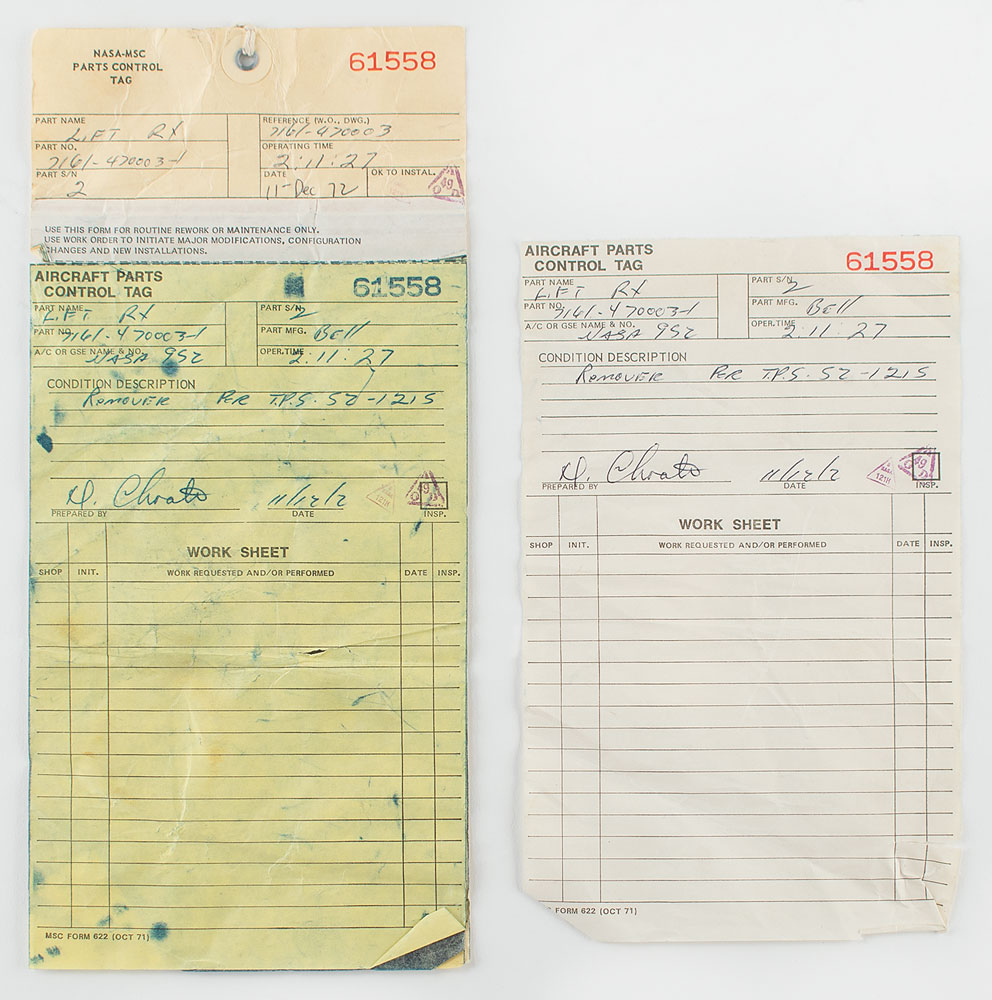 NASA-MSC
PARTS CONTROL
TAG
61558
PART NAME
LIFT RX
REFERENCE (W.O., DWG.)
7161-470003
PART NO.
7161-470003-1
OPERATING TIME
2:11:27
PART S/N
2
DATE
15 Dec 72
OK TO INSTAL.
USE THIS FORM FOR ROUTINE REWORK OR MAINTENANCE ONLY.
USE WORK ORDER TO INITIATE MAJOR MODIFICATIONS, CONFIGURATION
CHANGES AND NEW INSTALLATIONS.
AIRCRAFT PARTS
CONTROL TAG
61558
PART NAME
LIFT RX
PART S/N
2
PART NO.
7161-470003-1
PART MFG.
Bell
A/C OR GSE NAME & NO.
NASA 952
OPER.TIME
2:11:27
CONDITION DESCRIPTION
REMOVER PER T.P.S. S2-1215
D. Choate
11/12/2
PREPARED BY
DATE
INSP.
WORK SHEET
SHOP INIT. WORK REQUESTED AND/OR PERFORMED DATE INSP.
MSC FORM 622 (OCT 71)
AIRCRAFT PARTS
CONTROL TAG
61558
PART NAME
LIFT RX
PART S/N
2
PART NO.
7161-470003-1
PART MFG.
Bell
A/C OR GSE NAME & NO.
NASA 952
OPER.TIME
2:11:27
CONDITION DESCRIPTION
REMOVER PER T.P.S. S2-1215
D. Choate
11/12/2
PREPARED BY
DATE
INSP.
WORK SHEET
SHOP INIT. WORK REQUESTED AND/OR PERFORMED DATE INSP.
FORM 622 (OCT 71)